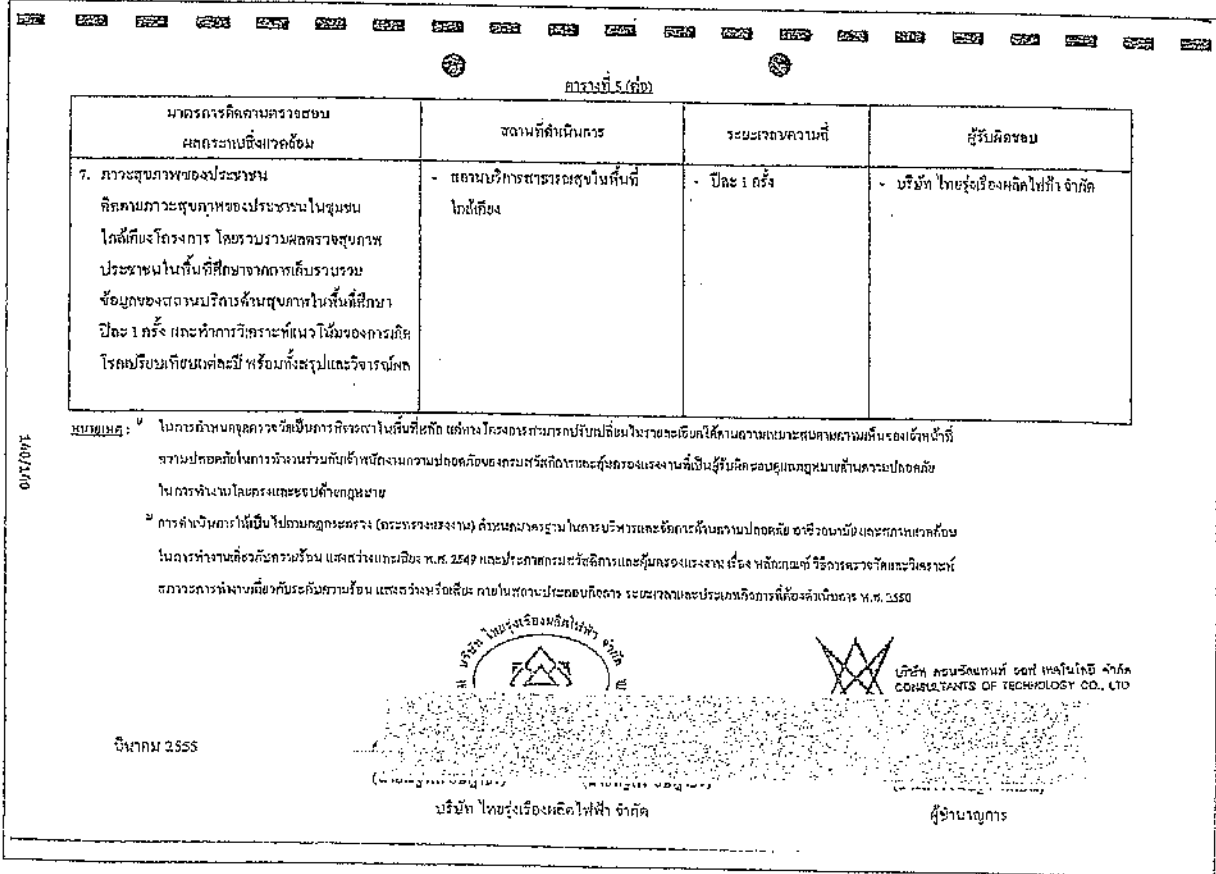 ตารางที่ 5 (ต่อ)
มาตรการติดตามตรวจสอบ
ผลกระทบสิ่งแวดล้อม
สถานที่ดำเนินการ
ระยะเวลา/ความถี่
ผู้รับผิดชอบ
7. ภาวะสุขภาพของประชาชน
ติดตามภาวะสุขภาพของประชาชนในชุมชน
ใกล้เคียงโครงการ โดยรวบรวมผลตรวจสุขภาพ
ประชาชนในพื้นที่ศึกษาจากการเก็บรวบรวม
ข้อมูลของสถานบริการด้านสุขภาพในพื้นที่ศึกษา
ปีละ 1 ครั้ง และทำการวิเคราะห์แนวโน้มของการเกิด
โรคเปรียบเทียบแต่ละปี พร้อมทั้งสรุปและวิจารณ์ผล
- สถานบริการสาธารณสุขในพื้นที่
ใกล้เคียง
- ปีละ 1 ครั้ง
- บริษัท ไทยรุ่งเรืองผลิตไฟฟ้า จำกัด
หมายเหตุ : 1/ ในการกำหนดจุดตรวจวัดเป็นการพิจารณาในพื้นที่หลัก แต่ทางโครงการสามารถปรับเปลี่ยนในรายละเอียดได้ตามความเหมาะสมตามความเห็นของเจ้าหน้าที่
ความปลอดภัยในการทำงานร่วมกับเจ้าพนักงานความปลอดภัยของกรมสวัสดิการและคุ้มครองแรงงานที่เป็นผู้รับผิดชอบดูแลกฎหมายด้านความปลอดภัย
ในการทำงานโดยตรงและชอบด้วยกฎหมาย
2/ การดำเนินการให้เป็นไปตามกฎกระทรวง (กระทรวงแรงงาน) กำหนดมาตรฐานในการบริหารและจัดการด้านความปลอดภัย อาชีวอนามัย และสภาพแวดล้อม
ในการทำงานเกี่ยวกับความร้อน แสงสว่างและเสียง พ.ศ. 2549 และประกาศกรมสวัสดิการและคุ้มครองแรงงาน เรื่อง หลักเกณฑ์ วิธีการตรวจวัดและวิเคราะห์
สภาวะการทำงานเกี่ยวกับระดับความร้อน แสงสว่างหรือเสียง ภายในสถานประกอบกิจการ ระยะเวลาและประเภทกิจการที่ต้องดำเนินการ พ.ศ. 2550
บริษัท ไทยรุ่งเรืองผลิตไฟฟ้า จำกัด
บริษัท คอนซัลแทนท์ ออฟ เทคโนโลยี จำกัด
CONSULTANTS OF TECHNOLOGY CO., LTD
มีนาคม 2555
บริษัท ไทยรุ่งเรืองผลิตไฟฟ้า จำกัด
ผู้ชำนาญการ